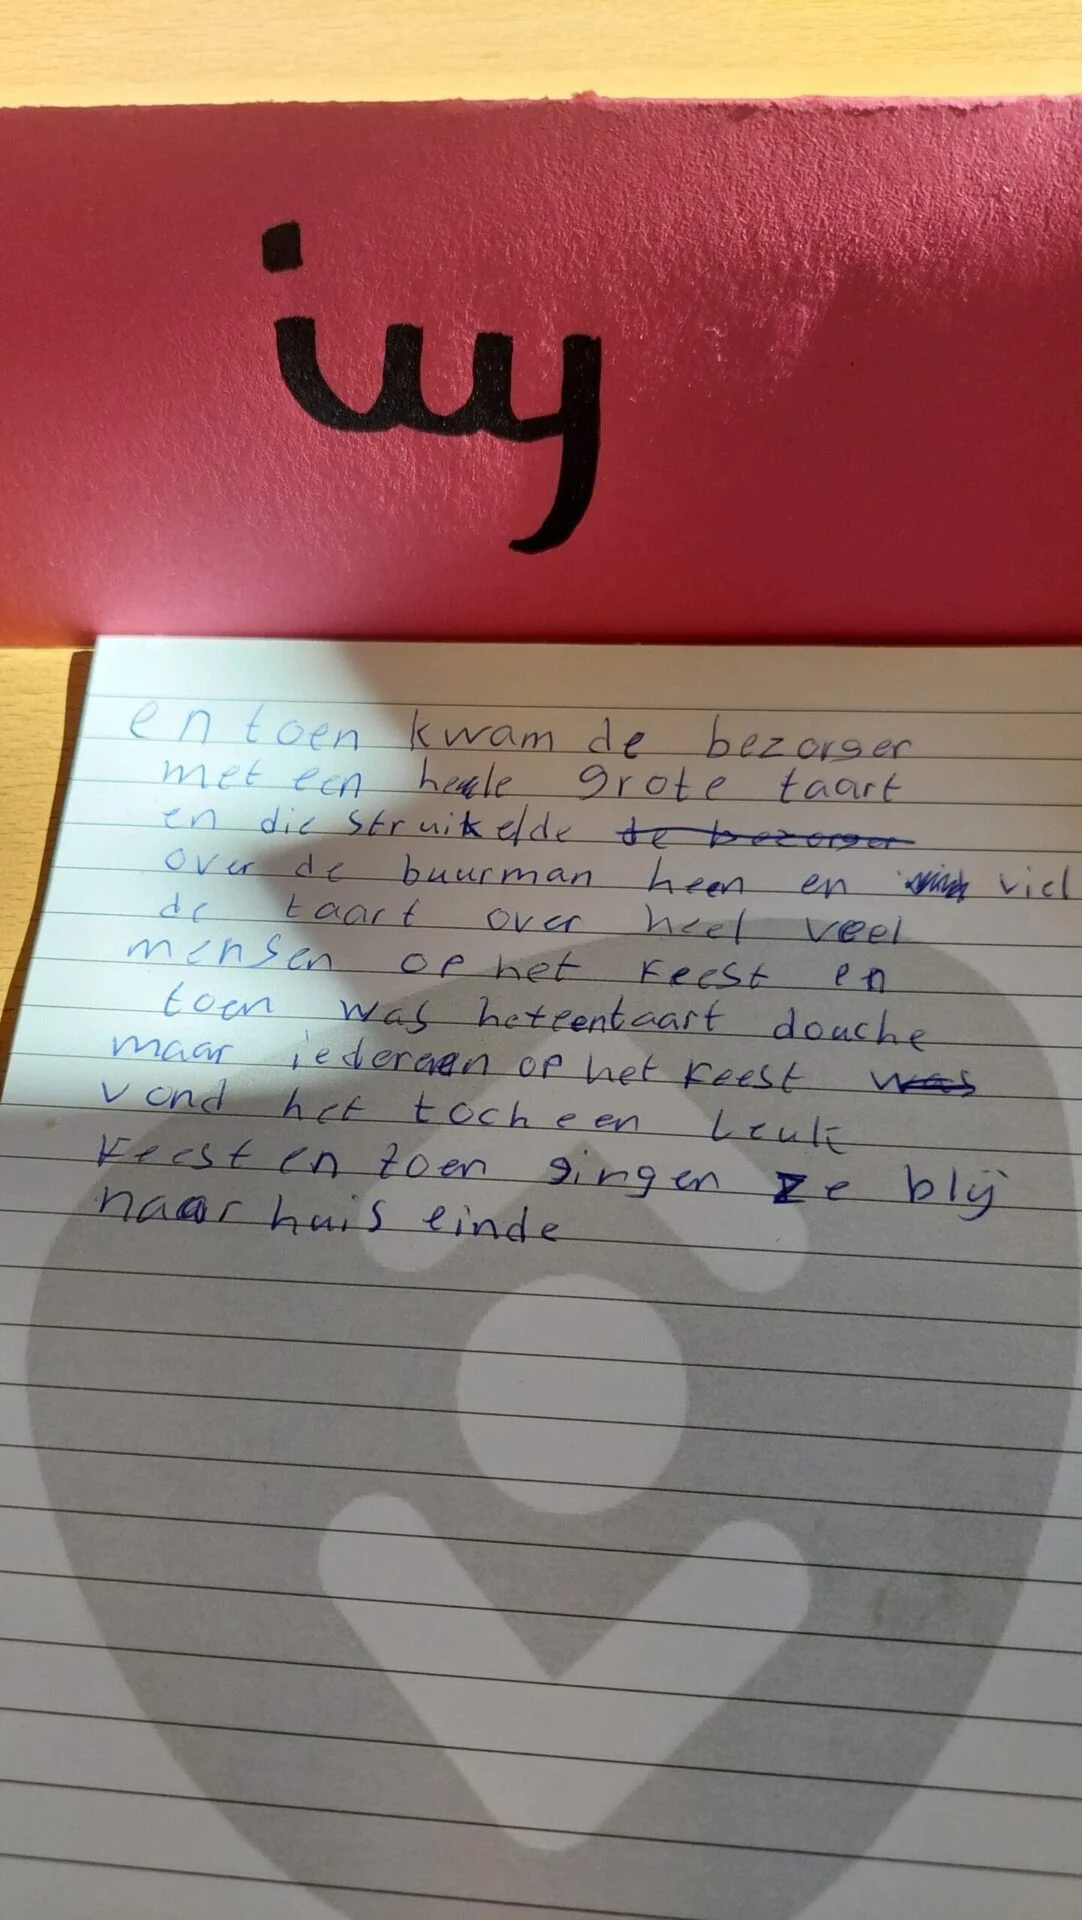 ivy
en toen kwam de bezorger
met een hele grote taart
en die struikelde de bezorger
over de buurman heen en viel
de taart over heel veel
mensen op het feest en
toen was het een taart douche
maar iedereen op het feest was
vond het toch een leuk
feest en toen gingen ze blij
naar huis einde